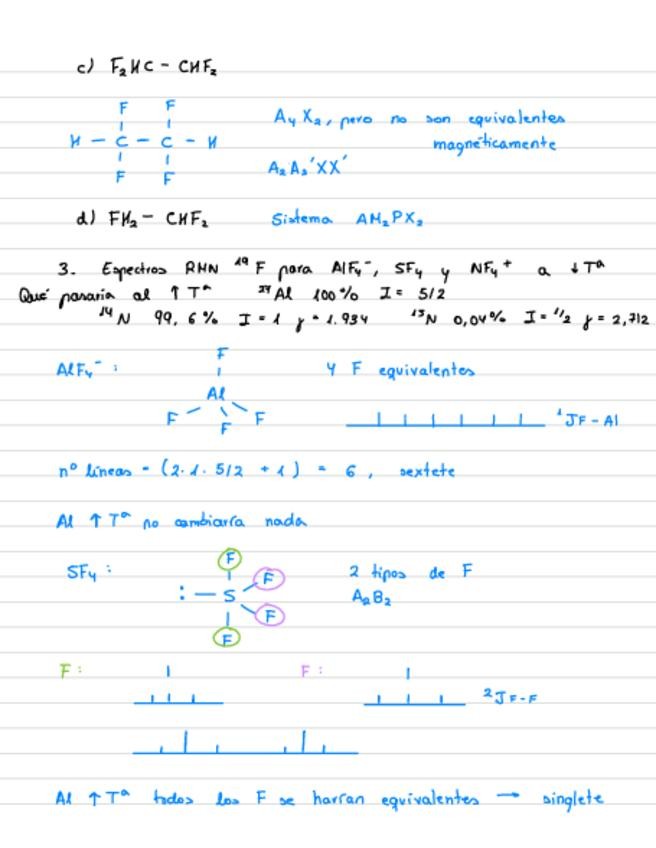 c) F₂HC - CHF₂
F F
H - C - C - H
F F
A₄X₂, pero no son equivalentes
magnéticamente
A₂A₂'XX'
d) FH₂ - CHF₂ Sistema AM₂PX₂
3. Espectros RMN ¹⁹F para AlF₄⁻, SF₄ y NF₄⁺ a ↓Tª
Qué pasaría al ↑Tª ²⁷Al 100% I = 5/2
¹⁴N 99,6% I = 1 γ = 1.934 ¹⁵N 0,04% I = ½ γ = 2,712
AlF₄⁻ :
F
Al
F F F
4 F equivalentes
¹JF-Al
nº líneas = (2·1·5/2 + 1) = 6, sextete
Al ↑Tª no cambiaría nada
SF₄ :
F
F
: - S
F
F
2 tipos de F
A₂B₂
F : F : ²JF-F
Al ↑Tª todos los F se harían equivalentes → singlete